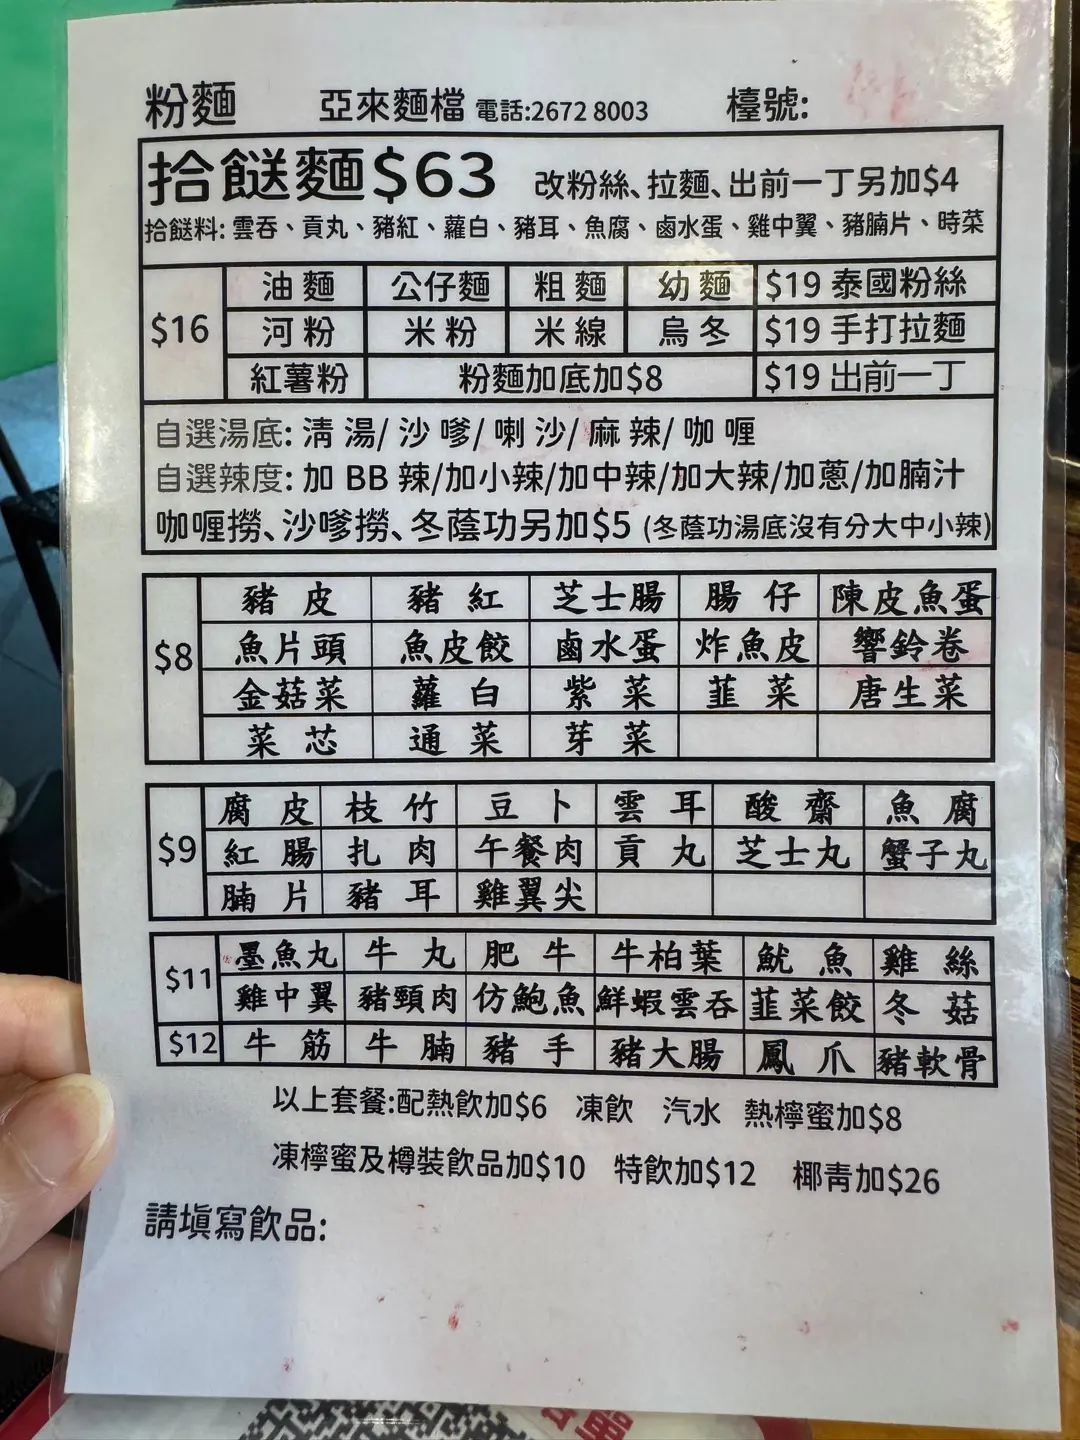 粉麵 亞來麵檔 電話:2672 8003 檯號:
拾餸麵$63 改粉絲、拉麵、出前一丁另加$4
拾餸料: 雲吞、貢丸、豬紅、蘿白、豬耳、魚腐、鹵水蛋、雞中翼、豬腩片、時菜
$16
油麵 公仔麵 粗麵 幼麵 $19 泰國粉絲
河粉 米粉 米線 烏冬 $19 手打拉麵
紅薯粉 粉麵加底加$8 $19 出前一丁
自選湯底: 清湯/ 沙嗲/ 喇沙/ 麻辣/ 咖喱
自選辣度: 加 BB 辣/加小辣/加中辣/加大辣/加蔥/加腩汁
咖喱撈、沙嗲撈、冬蔭功另加$5 (冬蔭功湯底沒有分大中小辣)
$8
豬皮 豬紅 芝士腸 腸仔 陳皮魚蛋
魚片頭 魚皮餃 鹵水蛋 炸魚皮 響鈴卷
金菇菜 蘿白 紫菜 韮菜 唐生菜
菜芯 通菜 芽菜
$9
腐皮 枝竹 豆卜 雲耳 酸齋 魚腐
紅腸 扎肉 午餐肉 貢丸 芝士丸 蟹子丸
腩片 豬耳 雞翼尖
$11
墨魚丸 牛丸 肥牛 牛柏葉 魷魚 雞絲
雞中翼 豬頸肉 仿鮑魚 鮮蝦雲吞 韮菜餃 冬菇
$12 牛筋 牛腩 豬手 豬大腸 鳳爪 豬軟骨
以上套餐:配熱飲加$6 凍飲 汽水 熱檸蜜加$8
凍檸蜜及樽裝飲品加$10 特飲加$12 椰青加$26
請填寫飲品: